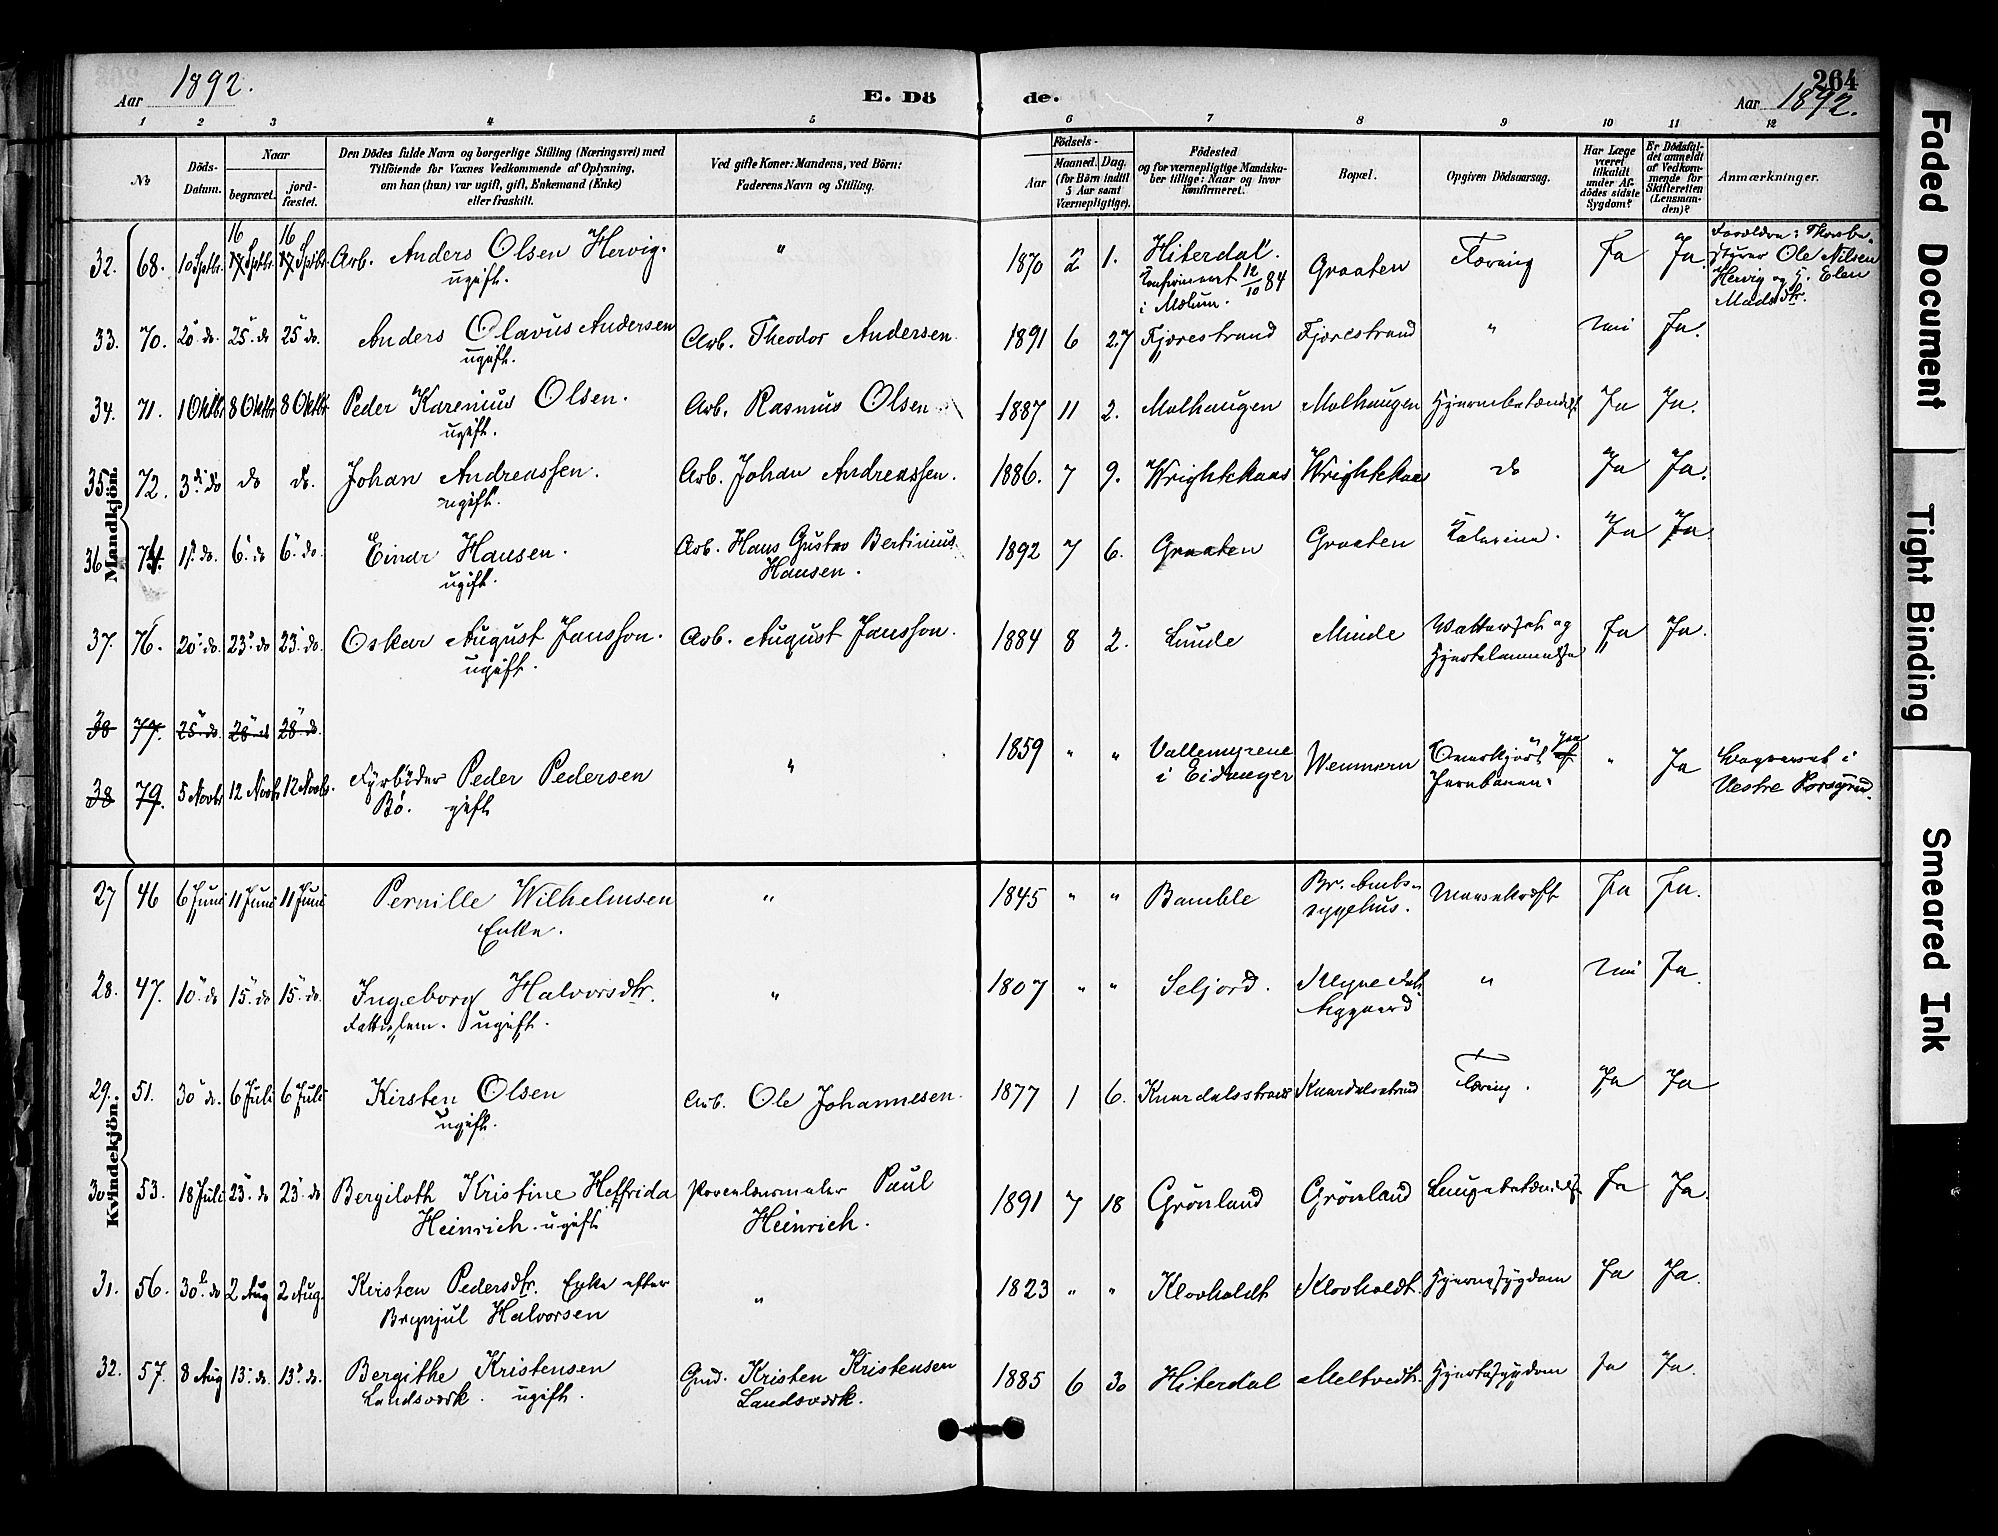 Aar 1892. E. Dö de. 264
Aar 1892.
1 2 3 4 5 6 7 8 9 10 11 12
No
Döds-Datum.
Naar
begravet.
jord-fæstet.
Den Dödes fulde Navn og borgerlige Stilling (Næringsvei) med
Tilföiende for Voxnes Vedkommende af Oplysning,
om han (hun) var ugift, gift, Enkemand (Enke)
eller fraskilt.
Ved gifte Koner: Mandens, ved Börn:
Faderens Navn og Stilling.
Födsels-
Aar
Maaned. Dag.
(for Börn indtil
5 Aar samt
Værnepligtige).
Födested
og for værnepligtige Mandska-
ber tillige: Naar og hvor
konfirmeret.
Bopæl.
Opgiven Dödsaarsag.
Har Læge
været
tilkaldt
under Af-
dödes sidste
Sygdom?
Er Dödsfal-
det anmeldt
af Vedkom-
mende for
Skifteretten
(Lensman-
den)?
Anmærkninger.
Mandkjön.
32. 68. 10 Septbr. 16 17 Septbr. 16 17 Septbr. Arb. Anders Olsen Hervig. " 1870 2 1. Hiterdal. Graaten Tæring Ja Ja. Forældre:
ugift. Konfirmeret 12/10 84 Ole Nilsen
i Mælum. Hervig og H. Elen
Madsdtr.
33. 70. 20 do. 25 do 25 do. Anders Olavus Andersen Arb. Theodor Andersen. 1891 6 27 Fjærestrand Fjærestrand " nei Ja.
ugift.
34. 71. 1 Oktbr 8 Oktbr 8 Oktbr. Peder Karenius Olsen. Arb. Rasmus Olsen 1887 11 2. Molhaugen Molhaugen Ja Ja.
ugift.
35 72. 3. do do do. Johan Andreassen. Arb. Johan Andreassen. 1886. 7 9. do Ja Ja.
ugift.
36 74. 1. do. 6. do 6. do. Einar Hansen. Arb. Hans Gustav Bertinius 1892 7 6. Graaten Graaten Kolerine. Ja Ja
ugift. Hansen.
37. 76. 20 do. 23. do 23. do. Oskar August Jansson. Arb. August Jansson. 1884 8 2. Lunde Minde Vattersot og Ja Ja.
ugift. Hjertelammelse
38 77. 25. do. 28 do 28 do.
38 79. 5 Novbr 12 Novbr 12 Novbr. Fyrböder Peder Pedersen " 1859 " " Vallemyrene Overkjört af paa " Ja Begravet i
Bö. gift i Eidanger Jernbanen. Vestre Porsgrund.
Kvindekjön.
27 46 6 Juni 11 Juni 11 Juni Pernille Wilhelmsen " 1845 " " Bamble Br. Amts- Mavekræft Ja Ja.
Enke. sygehus.
28. 47. 10 do 15. do 15. do. Ingeborg Halvorsdtr. " 1807 " " Seljord. " nei Ja.
Fattiglem. ugift.
29. 51. 30 do. 6 Juli 6 Juli Kirsten Olsen Arb. Ole Johannesen. 1877 1 6. Knardalsstrand Knardalsstrand Tæring. Ja Ja
ugift.
30 53. 18 Juli 23. do 23. do Bergiloth Kristine Helfrida Porcelænsmaler Paul 1891 7 18 Grönland Grönland Lungebetændelse Ja Ja.
Heinrich. ugift Heinrich.
31. 56. 30. do 2 Aug 2 Aug. Kirsten Pedersdtr. Enke efter " 1823 " " Klovholdt Klovholdt. Hjernesygdom Ja Ja.
Brynjul Halvorsen
32. 57. 8 Aug 13. do. 13. do. Bergithe Kristensen Gmd. Kristen Kristensen 1885 6 30 Hiterdal Meltvedt. Hjertesygdom Ja Ja.
Landsværk. ugift. Landsværk.
Faded Document
Tight Binding
Smeared Ink